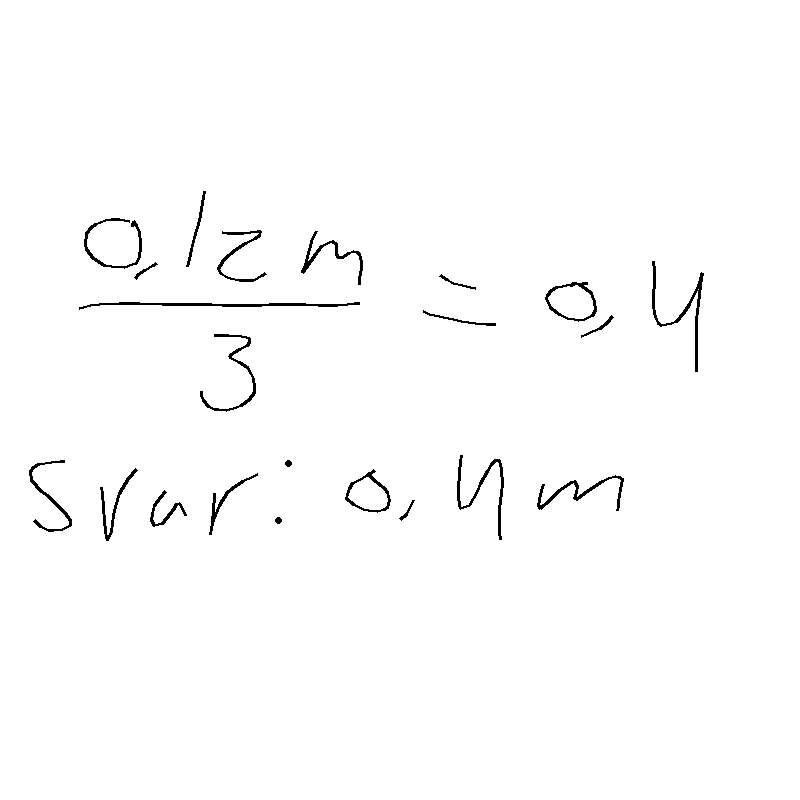 0,12 m / 3 = 0,4
Svar: 0,4 m